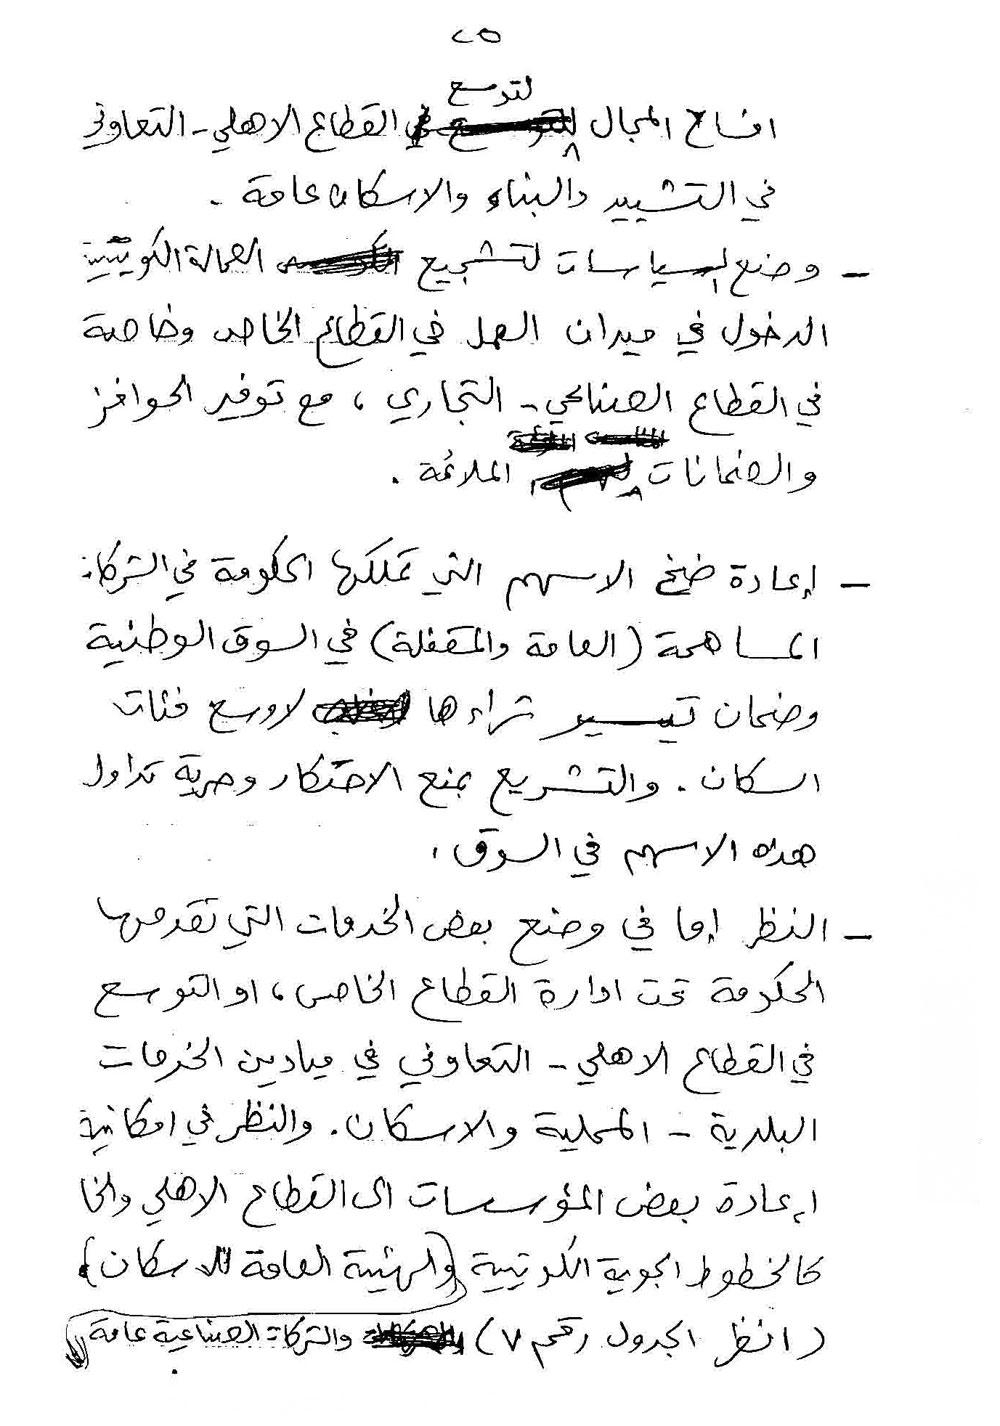 ٢٥
لتوسع
افساح المجال القطاع الاهلي - التعاوني
في التشييد والبناء والاسكان عامة .
- وضع السياسات لتشجيع العمالة الكويتية
الدخول في ميدان العمل في القطاع الخاص وخاصة
في القطاع الصناعي - التجاري ، مع توفير الحوافز
والضمانات الملائمة .
- إعادة ضخ الاسهم التي تملكها الحكومة في الشركات
المساهمة (العامة والمقفلة) في السوق الوطنية
وضمان تيسير شراءها لاوسع فئات
السكان . والتشريع بمنع الاحتكار وحرية تداول
هذه الاسهم في السوق .
- النظر إما في وضع بعض الخدمات التي تقدمها
الحكومة تحت ادارة القطاع الخاص ، او التوسع
في القطاع الاهلي - التعاوني في ميادين الخدمات
البلدية - المحلية والاسكان . والنظر في امكانية
إعادة بعض المؤسسات الى القطاع الاهلي والخا
كالخطوط الجوية الكويتية (والهيئة العامة للاسكان)
(انظر الجدول رقم ٧) والشركات الصناعية عامة .